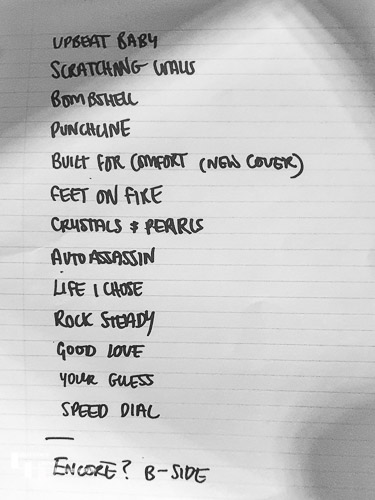 UPBEAT BABY
SCRATCHING WALLS
BOMBSHELL
PUNCHLINE
BUILT FOR COMFORT (NEW COVER)
FEET ON FIRE
CRYSTALS & PEARLS
AUTO ASSASSIN
LIFE I CHOSE
ROCK STEADY
GOOD LOVE
YOUR GUESS
SPEED DIAL
ENCORE? B-SIDE